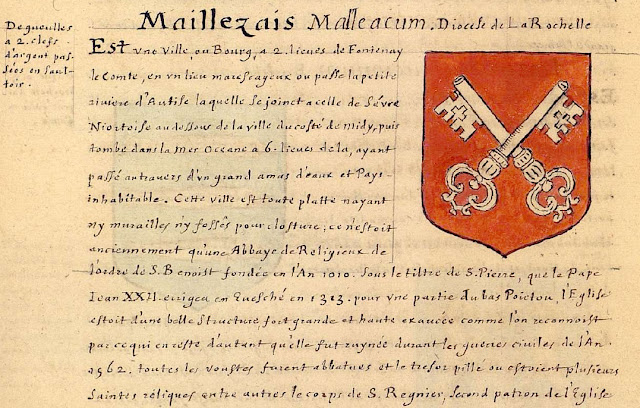 Maillezais Malleacum. Diocese de La Rochelle
De gueulles
a 2. clefs
d'argent pas-
sées en saul-
toir.
Est vne Ville, ou Bourg, a 2. lieues de Fontenay
le Comte, en vn lieu marescageux ou passe la petite
riviere d'Autise laquelle se joinct a celle de Sévre
Niortoise au dessous de la ville du costé de Midy, puis
tombe dans la Mer Oceane a 6. lieues de la, ayant
passé au travers d'vn grand amas d'eaux et Pays
inhabitable. Cette ville est toute platte n'ayant
ny murailles ny fossés pour closture, ce n'estoit
anciennement qu'une Abbaye de Religieux de
l'ordre de S. Benoist fondée en l'An 1010. Sous le tiltre de S. Pierre, que le Pape
Iean XXII. erigea en Euesché en 1313. pour vne partie du bas Poictou, l'Eglise
estoit d'une belle structure fort grande et haute exaucée comme l'on reconnoist
par ce qui en reste d'autant qu'elle fut ruynée durant les guerres civiles de l'An
1562. toutes les voustes furent abbatues et le tresor pillé ou estoient plusieurs
Saintes réliques entre autres le corps de S. Regnier, second patron de l'Eglise